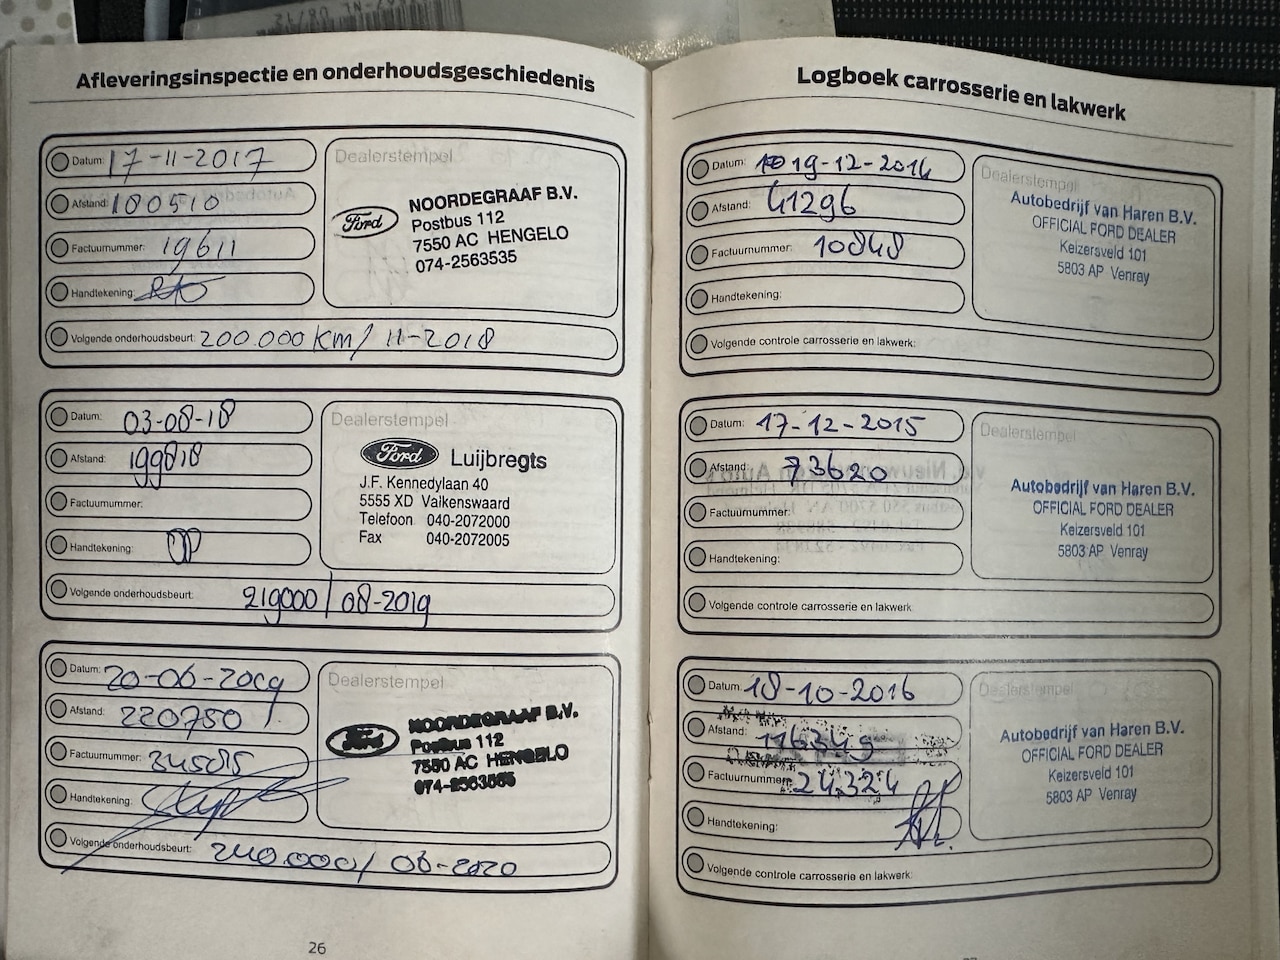 Afleveringsinspectie en onderhoudsgeschiedenis
Datum: 17-11-2017
Afstand: 180510
Factuurnummer: 19611
Handtekening:
Volgende onderhoudsbeurt: 200.000 km/ 11-2018
Dealerstempel
Ford
NOORDEGRAAF B.V.
Postbus 112
7550 AC HENGELO
074-2563535
Datum: 03-08-18
Afstand: 199818
Factuurnummer:
Handtekening:
Volgende onderhoudsbeurt: 219000/ 08-2019
Dealerstempel
Ford Luijbregts
J.F. Kennedylaan 40
5555 XD Valkenswaard
Telefoon 040-2072000
Fax 040-2072005
Datum: 20-06-2019
Afstand: 220750
Factuurnummer:
Handtekening:
Volgende onderhoudsbeurt: 240.000/ 06-2020
Dealerstempel
Ford
NOORDEGRAAF B.V.
Postbus 112
7550 AC HENGELO
074-2563535
26
Logboek carrosserie en lakwerk
Datum: 19-12-2014
Afstand: 41296
Factuurnummer: 10848
Handtekening:
Volgende controle carrosserie en lakwerk:
Dealerstempel
Autobedrijf van Haren B.V.
OFFICIAL FORD DEALER
Keizersveld 101
5803 AP Venray
Datum: 17-12-2015
Afstand: 73620
Factuurnummer:
Handtekening:
Volgende controle carrosserie en lakwerk
Dealerstempel
Autobedrijf van Haren B.V.
OFFICIAL FORD DEALER
Keizersveld 101
5803 AP Venray
Datum: 18-10-2016
Afstand: 116349
Factuurnummer: 24324
Handtekening:
Volgende controle carrosserie en lakwerk:
Dealerstempel
Autobedrijf van Haren B.V.
OFFICIAL FORD DEALER
Keizersveld 101
5803 AP Venray